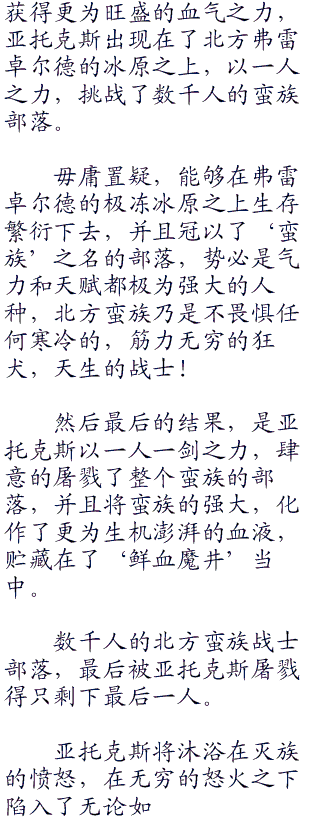 获得更为旺盛的血气之力，
亚托克斯出现在了北方弗雷
卓尔德的冰原之上，以一人
之力，挑战了数千人的蛮族
部落。
毋庸置疑，能够在弗雷
卓尔德的极冻冰原之上生存
繁衍下去，并且冠以了‘蛮
族’之名的部落，势必是气
力和天赋都极为强大的人
种，北方蛮族乃是不畏惧任
何寒冷的，筋力无穷的狂
犬，天生的战士！
然后最后的结果，是亚
托克斯以一人一剑之力，肆
意的屠戮了整个蛮族的部
落，并且将蛮族的强大，化
作了更为生机澎湃的血液，
贮藏在了‘鲜血魔井’当
中。
数千人的北方蛮族战士
部落，最后被亚托克斯屠戮
得只剩下最后一人。
亚托克斯将沐浴在灭族
的愤怒，在无穷的怒火之下
陷入了无论如